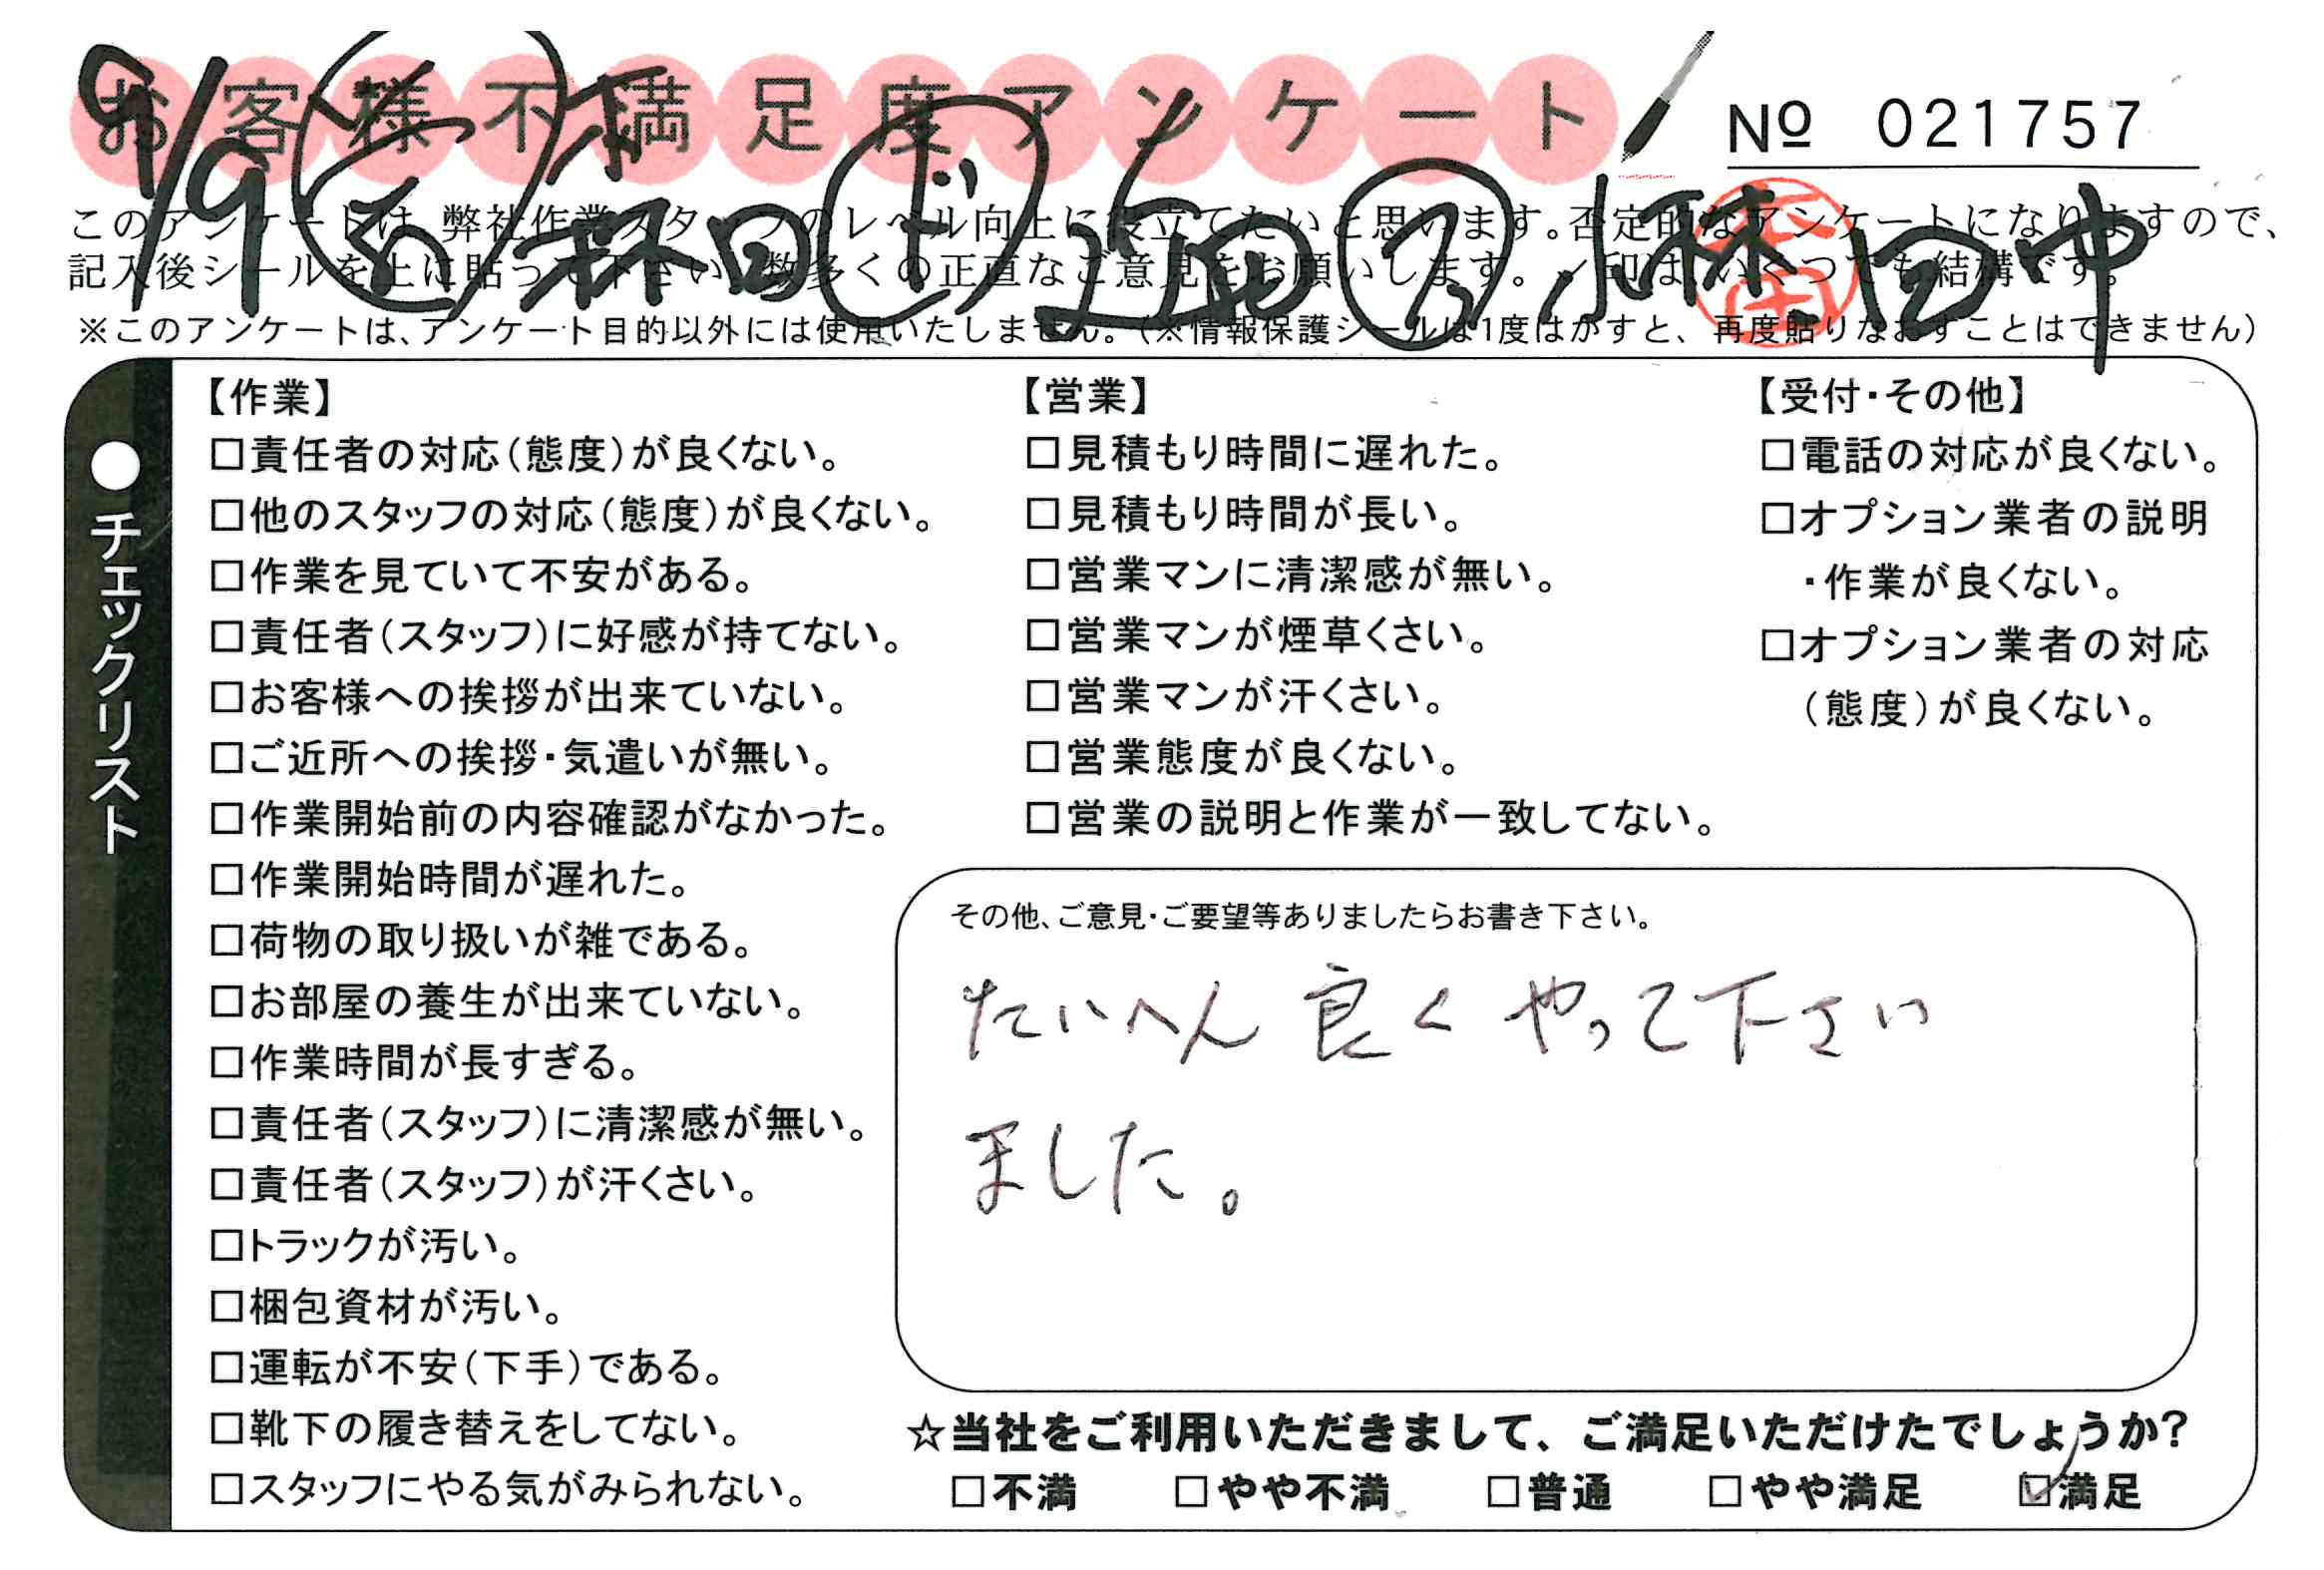 お客様不満足度アンケート
№ 021757
9/9
小林 田中
このアンケートは、弊社作業スタッフのレベル向上に役立てたいと思います。否定的なアンケートになりますので、
記入後シールを上に貼って下さい。数多くの正直なご意見をお願いします。✓印は、いくつでも結構です。
※このアンケートは、アンケート目的以外には使用いたしません。(※情報保護シールは1度はがすと、再度貼りなおすことはできません)
●チェックリスト
【作業】
□責任者の対応(態度)が良くない。
□他のスタッフの対応(態度)が良くない。
□作業を見ていて不安がある。
□責任者(スタッフ)に好感が持てない。
□お客様への挨拶が出来ていない。
□ご近所への挨拶・気遣いが無い。
□作業開始前の内容確認がなかった。
□作業開始時間が遅れた。
□荷物の取り扱いが雑である。
□お部屋の養生が出来ていない。
□作業時間が長すぎる。
□責任者(スタッフ)に清潔感が無い。
□責任者(スタッフ)が汗くさい。
□トラックが汚い。
□梱包資材が汚い。
□運転が不安(下手)である。
□靴下の履き替えをしてない。
□スタッフにやる気がみられない。
【営業】
□見積もり時間に遅れた。
□見積もり時間が長い。
□営業マンに清潔感が無い。
□営業マンが煙草くさい。
□営業マンが汗くさい。
□営業態度が良くない。
□営業の説明と作業が一致してない。
【受付・その他】
□電話の対応が良くない。
□オプション業者の説明
・作業が良くない。
□オプション業者の対応
(態度)が良くない。
その他、ご意見・ご要望等ありましたらお書き下さい。
たいへん良くやって下さい
ました。
☆当社をご利用いただきまして、ご満足いただけたでしょうか?
□不満 □やや不満 □普通 □やや満足 ☑満足